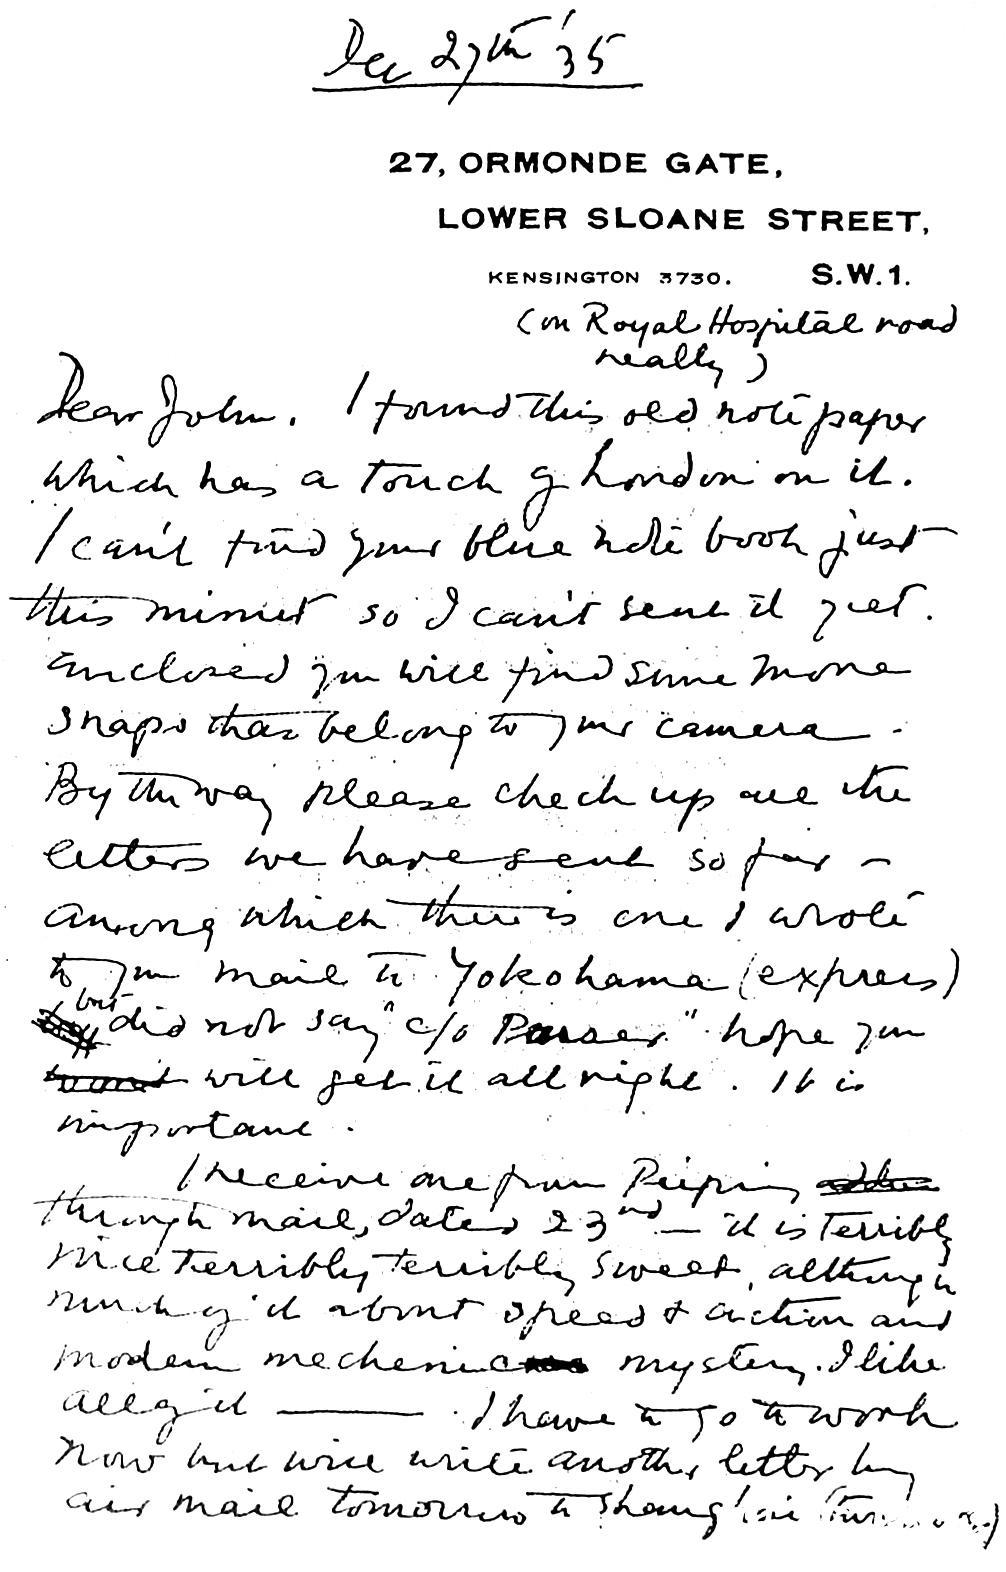 Dec 27th '35
27, ORMONDE GATE,
LOWER SLOANE STREET,
KENSINGTON 3730. S.W.1.
(on Royal Hospital road
really)
Dear John. I found this old note paper
which has a touch of London on it.
I can't find your blue note book just
this minut so I can't sent it yet.
Enclosed you will find some more
snaps that belong to your camera.
By the way please check up all the
letters we have sent so far –
among which there is one I wrote
to you mail to Yokohama (express)
but did not say "c/o Purser" hope you
will get it all right. It is
important.
I receive one from Peiping
through mail, dated 23nd – it is terribly
nice terribly terribly sweet, although
much of it about speed & action and
modern mechenic mystery. I like
all of it —— . I have to go to work
now but will write another letter by
air mail tomorrow to Shanghai